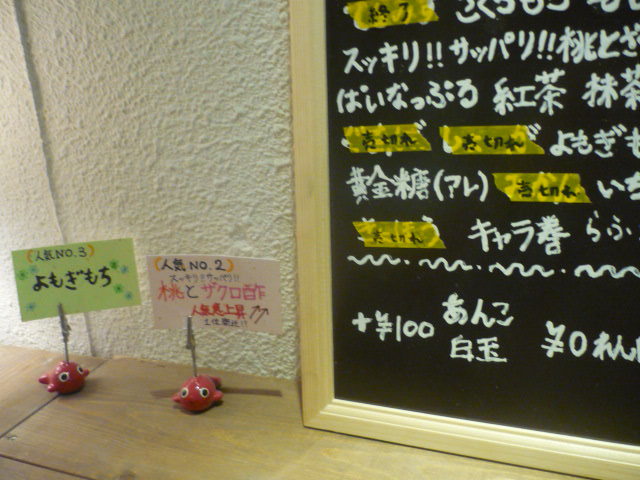 人気NO.3
よもぎもち
人気NO.2
スッキリ!!サッパリ!!
桃とザクロ酢
人気急上昇
終了 さくらもち
スッキリ!!サッパリ!!桃とざ
ぱいなっぷる 紅茶 抹茶
売切れ 売切れ よもぎも
黄金糖(アレ) 売切れ いち
売切れ キャラ巻 らふ
+¥100 あんこ
白玉
¥0 れん